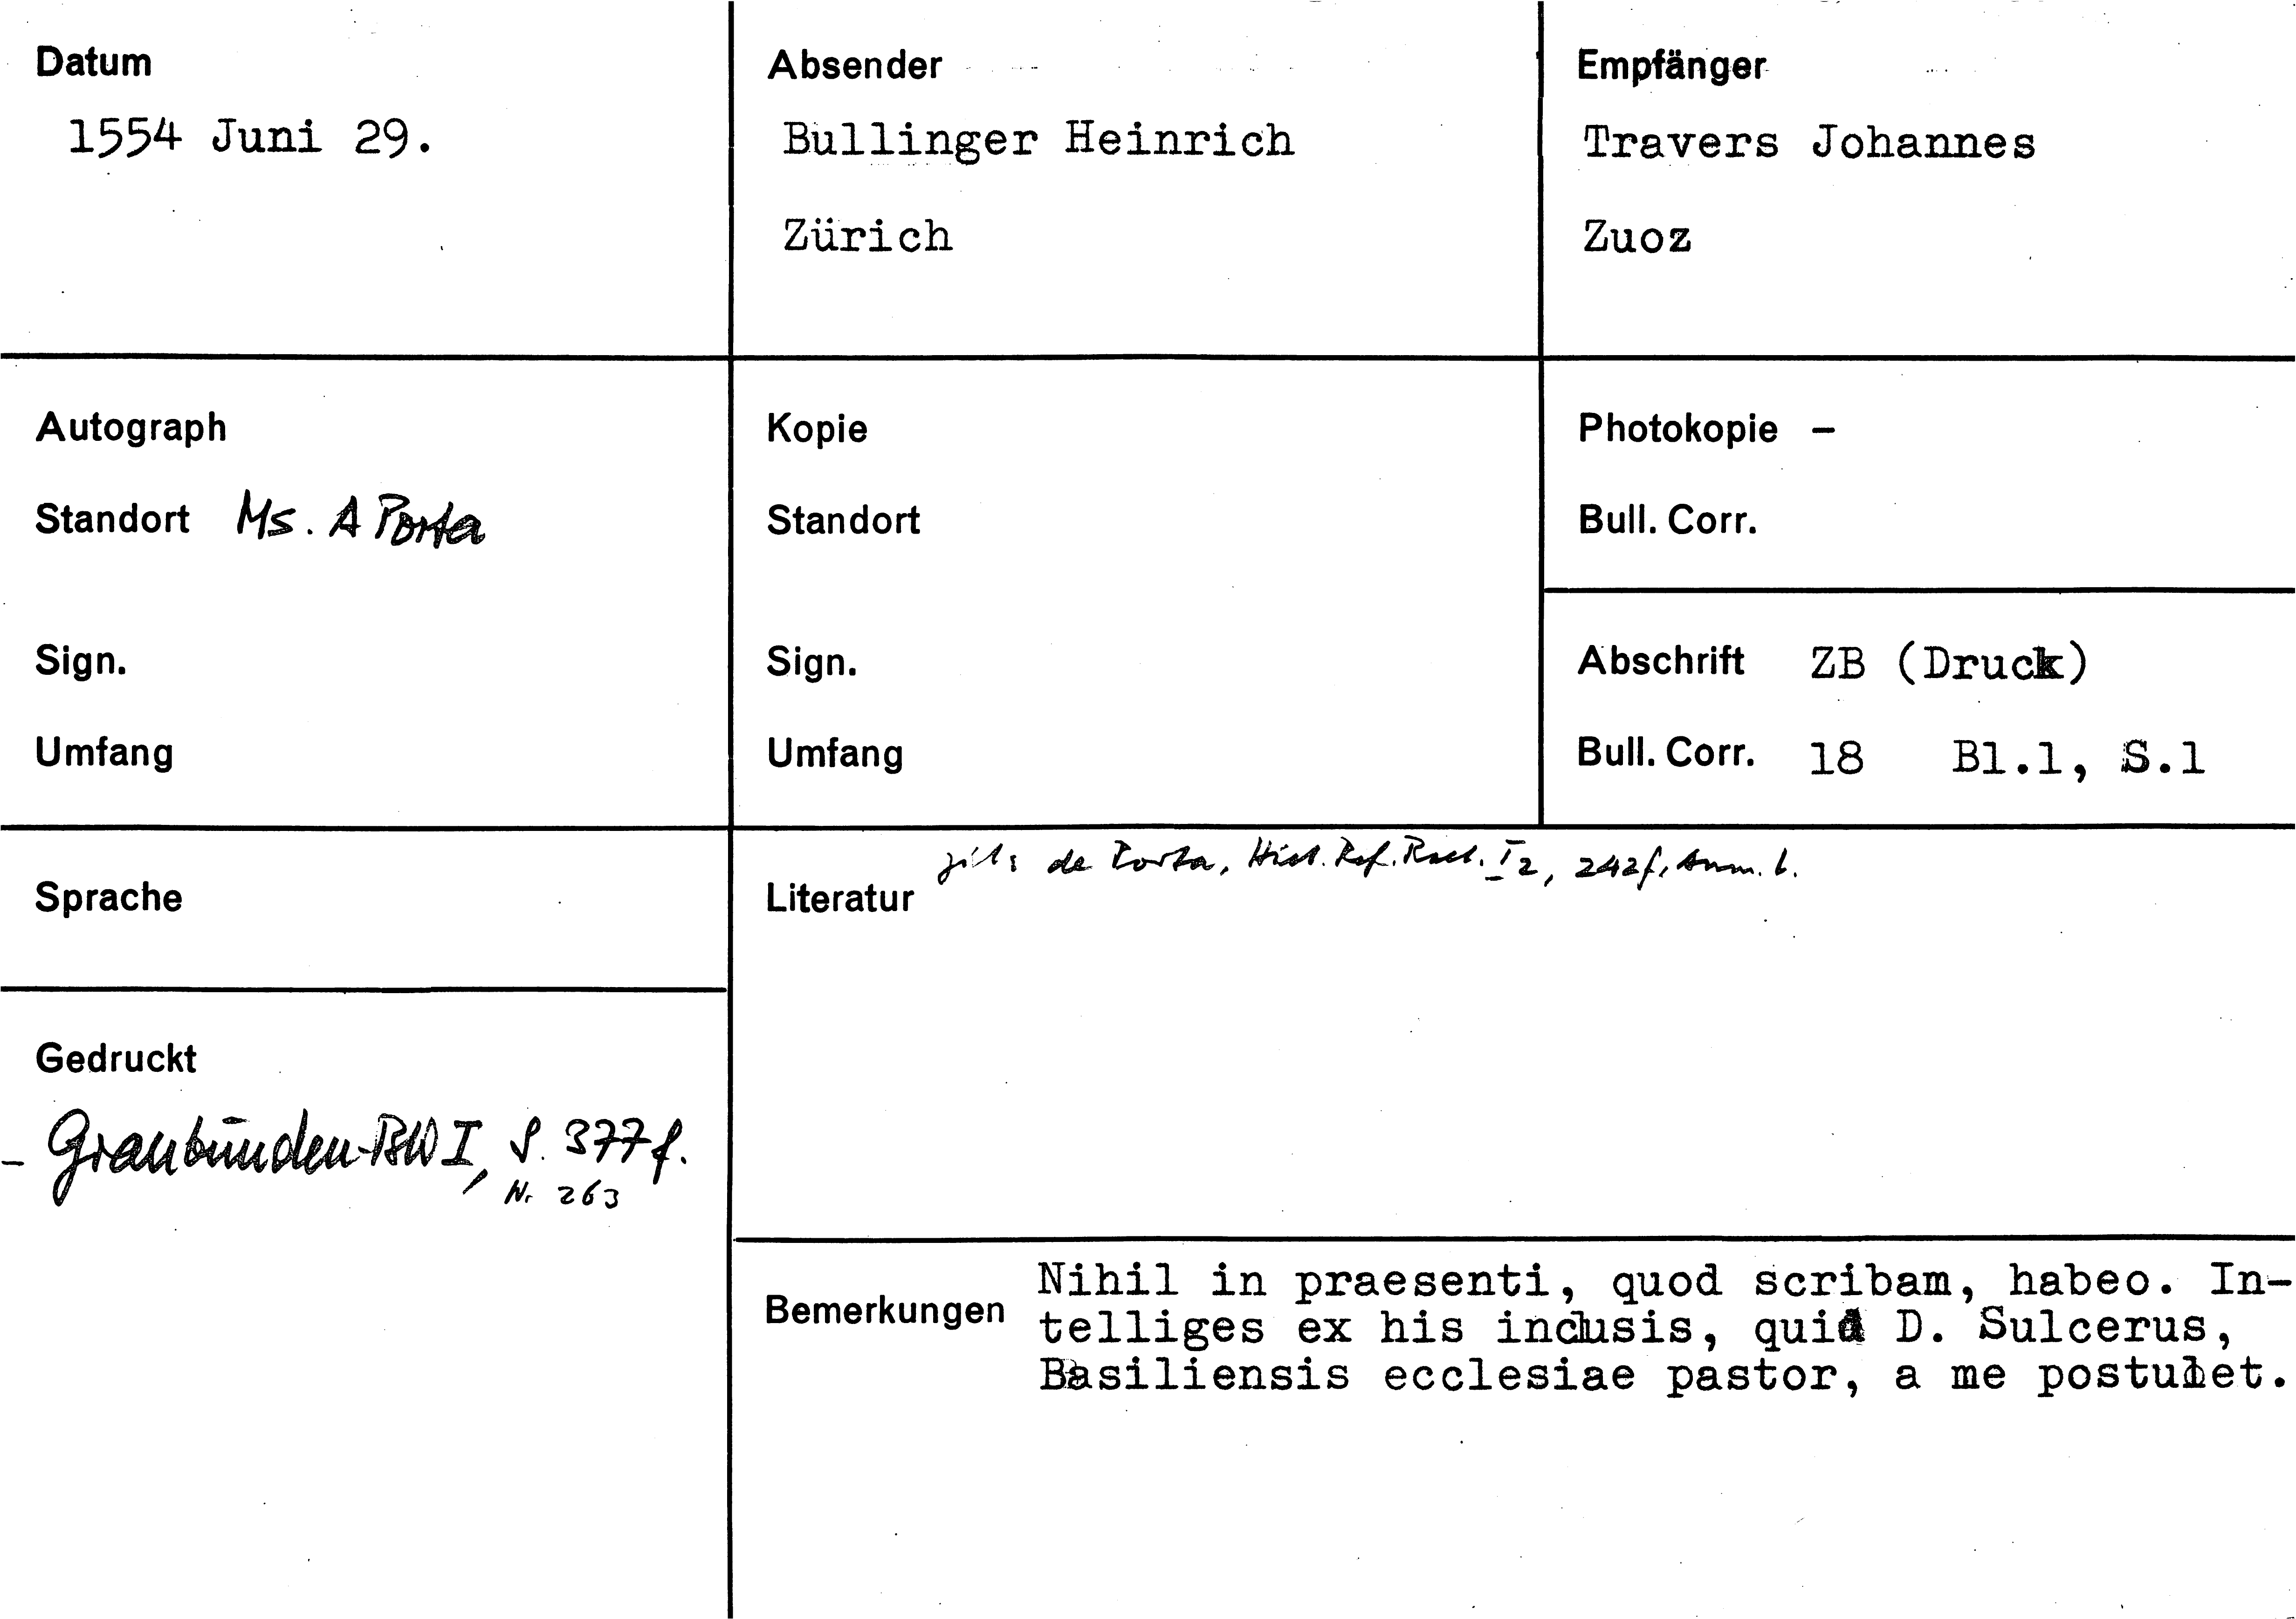 Datum
1554 Juni 29.
Absender
Bullinger Heinrich
Zürich
Empfänger
Travers Johannes
Zuoz
Autograph
Standort Ms. A Porta
Sign.
Umfang
Kopie
Standort
Sign.
Umfang
Photokopie –
Bull. Corr.
Abschrift ZB (Druck)
Bull. Corr. 18 Bl.1, S.1
Sprache
Gedruckt
- Graubünden-BW I, S. 377 f.
Nr 263
Literatur
zit: de Porta, Hist. Ref. Raet. I 2, 242f, Anm. b.
Bemerkungen
Nihil in praesenti, quod scribam, habeo. In-
telliges ex his inclusis, quid D. Sulcerus,
Basiliensis ecclesiae pastor, a me postulet.